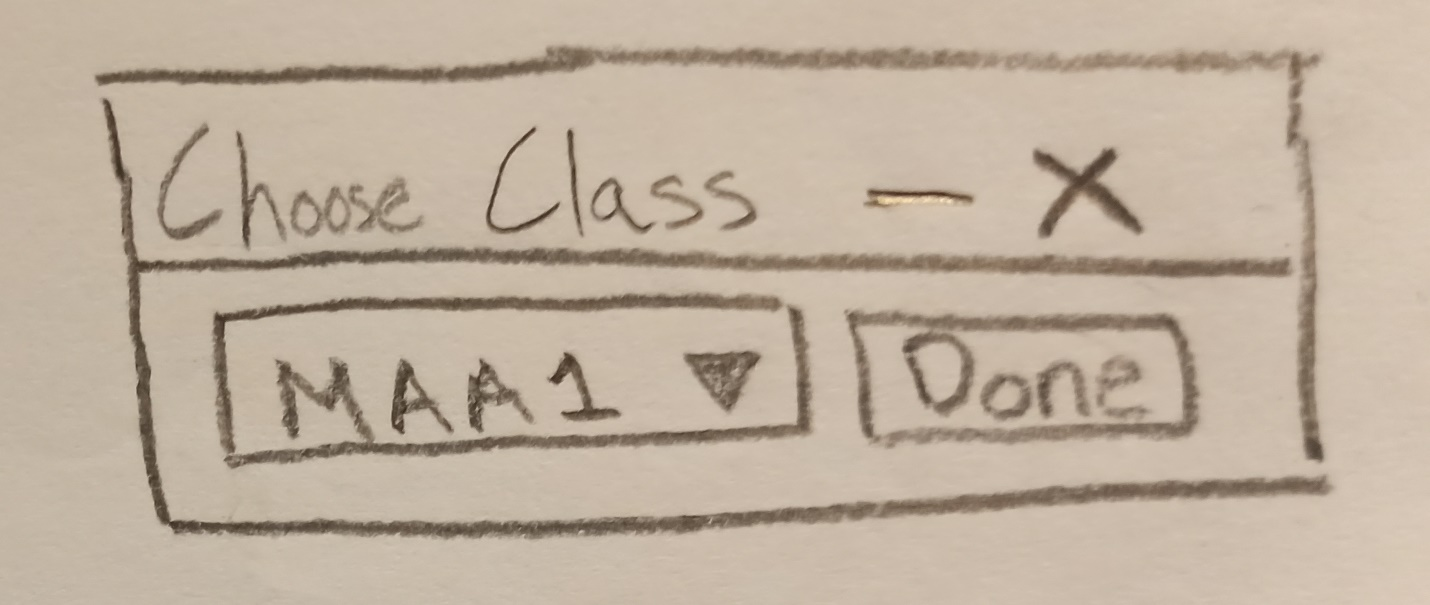 Choose Class - X
MAA1 ▼ Done